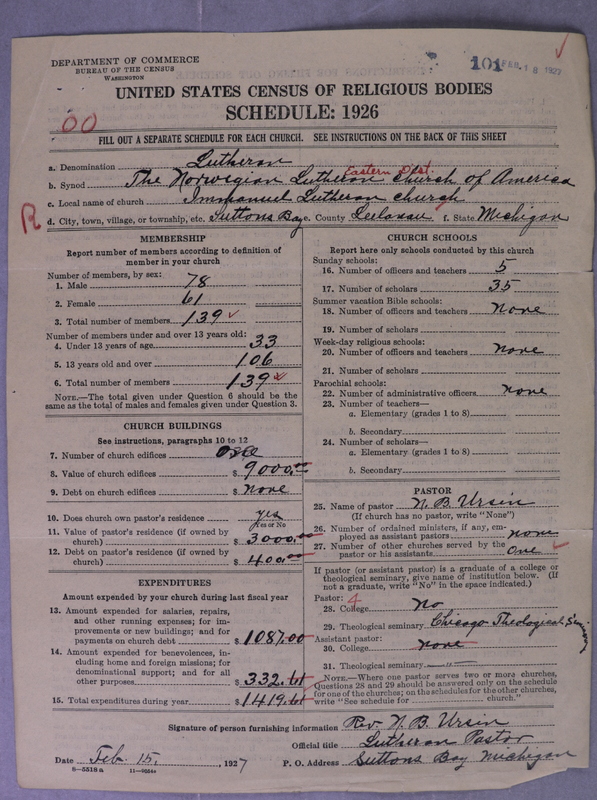 DEPARTMENT OF COMMERCE
BUREAU OF THE CENSUS
WASHINGTON
101 FEB. 18 1927
UNITED STATES CENSUS OF RELIGIOUS BODIES
SCHEDULE: 1926
00
FILL OUT A SEPARATE SCHEDULE FOR EACH CHURCH. SEE INSTRUCTIONS ON THE BACK OF THIS SHEET
a. Denomination Lutheran
Eastern Dist.
b. Synod The Norwegian Lutheran Church of America
c. Local name of church Immanuel Lutheran church
R d. City, town, village, or township, etc. Suttons Bay e. County Leelanau f. State Michigan
MEMBERSHIP
Report number of members according to definition of
member in your church
Number of members, by sex:
1. Male 78
2. Female 61
3. Total number of members 139
Number of members under and over 13 years old:
4. Under 13 years of age 33
5. 13 years old and over 106
6. Total number of members 139
NOTE.—The total given under Question 6 should be the
same as the total of males and females given under Question 3.
CHURCH BUILDINGS
See instructions, paragraphs 10 to 12
7. Number of church edifices one
8. Value of church edifices $ 9000.00
9. Debt on church edifices $ none
10. Does church own pastor's residence yes
Yes or No
11. Value of pastor's residence (if owned by
church) $ 3000.00
12. Debt on pastor's residence (if owned by
church) $ 400.00
EXPENDITURES
Amount expended by your church during last fiscal year
13. Amount expended for salaries, repairs,
and other running expenses; for im-
provements or new buildings; and for
payments on church debt $ 1087.00
14. Amount expended for benevolences, in-
cluding home and foreign missions; for
denominational support; and for all
other purposes $ 332.61
15. Total expenditures during year $ 1419.61
CHURCH SCHOOLS
Report here only schools conducted by this church
Sunday schools:
16. Number of officers and teachers 5
17. Number of scholars 35
Summer vacation Bible schools:
18. Number of officers and teachers none
19. Number of scholars
Week-day religious schools:
20. Number of officers and teachers none
21. Number of scholars
Parochial schools:
22. Number of administrative officers none
23. Number of teachers—
a. Elementary (grades 1 to 8)
b. Secondary
24. Number of scholars—
a. Elementary (grades 1 to 8)
b. Secondary
PASTOR
25. Name of pastor N. B. Ursin
(If church has no pastor, write "None")
26. Number of ordained ministers, if any, em-
ployed as assistant pastors none
27. Number of other churches served by the
pastor or his assistants One
If pastor (or assistant pastor) is a graduate of a college or
theological seminary, give name of institution below. (If
not a graduate, write "No" in the space indicated.)
Pastor: 4
28. College No
29. Theological seminary Chicago Theological Seminary
Assistant pastor:
30. College none
31. Theological seminary
NOTE.—Where one pastor serves two or more churches,
Questions 28 and 29 should be answered only on the schedule
for one of the churches; on the schedules for the other churches,
write "See schedule for church."
Signature of person furnishing information Rev. N. B. Ursin
Official title Lutheran Pastor
Date Feb. 15, 1927 P. O. Address Suttons Bay Michigan
8—5518a 11—9054a